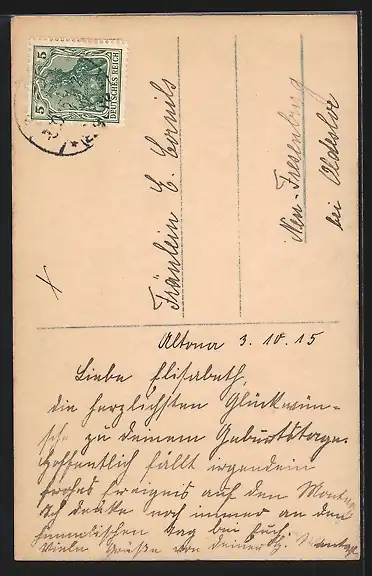 5 5
DEUTSCHES REICH
Fräulein E. Cornils
Neu-Fresenburg
bei Oldesloe
Altona 3.10.15
Liebe Elisabeth,
die herzlichsten Glückwün-
sche zu deinem Geburtstage.
Hoffentlich fällt irgendein
frohes Ereignis auf den Montag.
Ich denke noch immer an den
himmlischen Tag bei Euch.
Viele Grüße von deiner